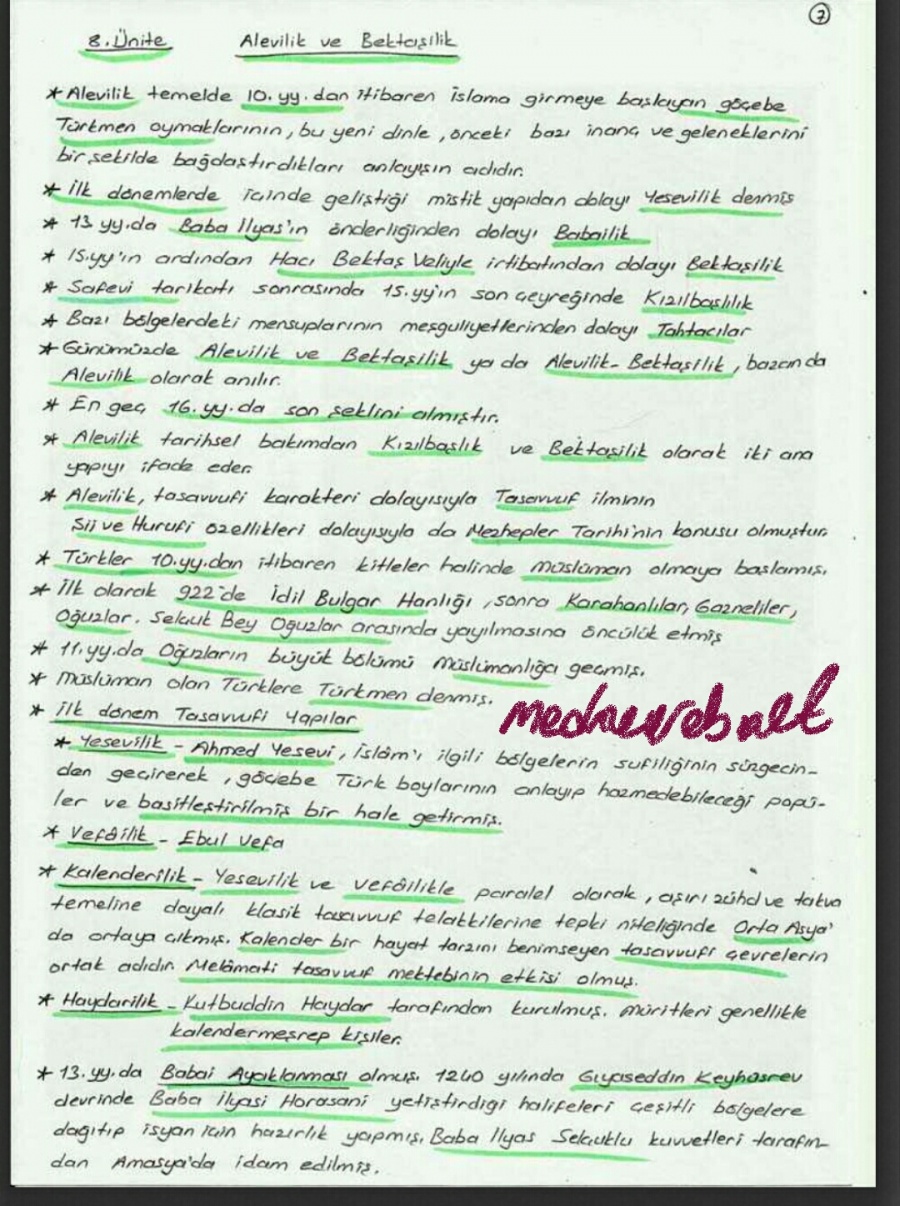 7
8. Ünite Alevilik ve Bektaşilik
* Alevilik temelde 10. yy. dan itibaren İslama girmeye başlayan göçebe
Türkmen oymaklarının, bu yeni dinle, önceki bazı inanç ve geleneklerini
bir şekilde bağdaştırdıkları anlayışın adıdır.
* İlk dönemlerde içinde geliştiği mistik yapıdan dolayı Yesevilik denmiş
* 13. yy. da Baba İlyas'ın önderliğinden dolayı Babailik
* 15.yy'ın ardından Hacı Bektaş Veliyle irtibatından dolayı Bektaşilik
* Safevi tarikatı sonrasında 15.yy'ın son çeyreğinde Kızılbaşlılık
* Bazı bölgelerdeki mensuplarının meşguliyetlerinden dolayı Tahtacılar
* Günümüzde Alevilik ve Bektaşilik ya da Alevilik-Bektaşilik, bazan da
Alevilik olarak anılır.
* En geç 16. yy. da son şeklini almıştır.
* Alevilik tarihsel bakımdan Kızılbaşlık ve Bektaşilik olarak iki ana
yapıyı ifade eder.
* Alevilik, tasavvufi karakteri dolayısıyla Tasavvuf ilminin
Şii ve Hurufi özellikleri dolayısıyla da Mezhepler Tarihi'nin konusu olmuştur.
* Türkler 10.yy.dan itibaren kitleler halinde müslüman olmaya başlamış.
* İlk olarak 922'de İdil Bulgar Hanlığı, sonra Karahanlılar, Gazneliler,
Oğuzlar. Selçuk Bey Oğuzlar arasında yayılmasına öncülük etmiş
* 11.yy.da Oğuzların büyük bölümü müslümanlığa geçmiş.
* Müslüman olan Türklere Türkmen denmiş.
* İlk dönem Tasavvufi Yapılar
* Yesevilik - Ahmed Yesevi, İslâm'ı ilgili bölgelerin sufiliğinin süzgecin-
den geçirerek, göçebe Türk boylarının anlayıp hazmedebileceği popü-
ler ve basitleştirilmiş bir hale getirmiş.
* Vefâilik - Ebul Vefa
* Kalenderilik - Yesevilik ve Vefâilikle paralel olarak, aşırı zühd ve takva
temeline dayalı klasik tasavvuf telakkilerine tepki niteliğinde Orta Asya'
da ortaya çıkmış. Kalender bir hayat tarzını benimseyen tasavvufi çevrelerin
ortak adıdır. Melâmati tasavvuf mektebinin etkisi olmuş.
* Haydarilik - Kutbuddin Haydar tarafından kurulmuş. müritleri genellikle
kalendermeşrep kişiler.
* 13. yy. da Babai Ayaklanması olmuş. 1240 yılında Gıyaseddin Keyhüsrev
devrinde Baba İlyasi Horasani yetiştirdiği halifeleri çeşitli bölgelere
dağıtıp isyan için hazırlık yapmış. Baba İlyas Selçuklu kuvvetleri tarafın-
dan Amasya'da idam edilmiş.